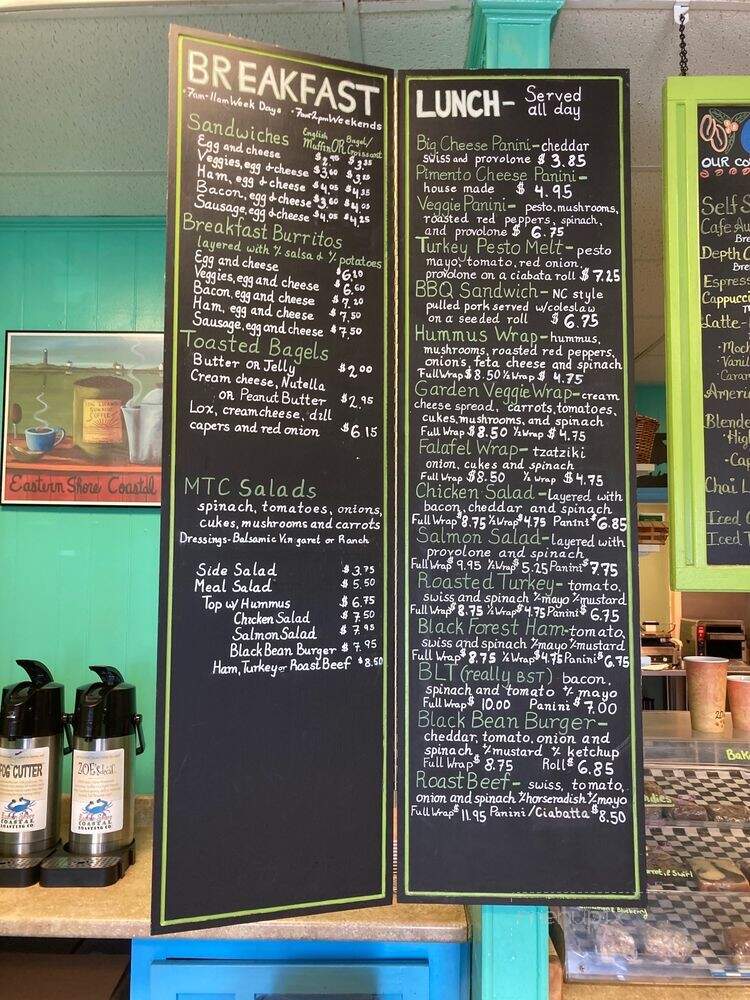 BREAKFAST
•7am-11am Week Days •7am-2pm Weekends
Sandwiches English Muffin OR Bagel/Croissant
Egg and cheese
Veggies, egg & cheese $3.60
Ham, egg & cheese $4.05 $4.35
Bacon, egg & cheese $3.60 $4.05
Sausage, egg & cheese $4.05 $4.25
Breakfast Burritos
layered with +/- salsa & +/- potatoes
Egg and cheese $6.20
Veggies, egg and cheese $6.60
Bacon, egg and cheese $7.20
Ham, egg and cheese $7.50
Sausage, egg and cheese $7.50
Toasted Bagels
Butter OR Jelly $2.00
Cream cheese, Nutella
OR Peanut Butter $2.95
Lox, creamcheese, dill
capers and red onion $6.15
MTC Salads
spinach, tomatoes, onions,
cukes, mushrooms and carrots
Dressings-Balsamic Vinigaret or Ranch
Side Salad $3.75
Meal Salad $5.50
Top w/ Hummus $6.75
Chicken Salad $7.50
Salmon Salad $7.95
Black Bean Burger $7.95
Ham, Turkey or Roast Beef $8.50
LUNCH- Served
all day
Big Cheese Panini-cheddar
swiss and provolone $3.85
Pimento Cheese Panini-
house made $4.95
Veggie Panini- pesto, mushrooms,
roasted red peppers, spinach,
and provolone $6.75
Turkey Pesto Melt-pesto
mayo, tomato, red onion,
provolone on a ciabata roll $7.25
BBQ Sandwich-NC style
pulled pork served w/coleslaw
on a seeded roll $6.75
Hummus Wrap-hummus,
mushrooms, roasted red peppers,
onions, feta cheese and spinach
Full Wrap $8.50 ½ Wrap $4.75
Garden Veggie Wrap-cream
cheese spread, carrots, tomatoes,
cukes, mushrooms, and spinach
Full Wrap $8.50 ½ Wrap $4.75
Falafel Wrap-tzatziki
onion, cukes and spinach
Full Wrap $8.50 ½ Wrap $4.75
Chicken Salad-Layered with
bacon, cheddar and spinach
Full Wrap $8.75 ½ Wrap $4.75 Panini $6.85
Salmon Salad-layered with
provolone and spinach
Full Wrap $9.95 ½ Wrap $5.25 Panini $7.75
Roasted Turkey-tomato,
swiss and spinach +/- mayo +/- mustard
Full Wrap $8.75 ½ Wrap $4.75 Panini $6.75
Black Forest Ham-tomato,
swiss and spinach +/- mayo +/- mustard
Full Wrap $8.75 ½ Wrap $4.75 Panini $6.75
BLT (really BST) bacon,
spinach and tomato +/- mayo
Full Wrap $10.00 Panini $7.00
Black Bean Burger-
cheddar, tomato, onion and
spinach, +/- mustard +/- ketchup
Full Wrap $8.75 Roll $6.85
Roast Beef- swiss, tomato,
onion and spinach +/- horseradish +/- mayo
Full Wrap $11.95 Panini/Ciabatta $8.50
OUR CO
Self S
Cafe Au
Bre
Depth C
Brew
Espress
Cappucci
Latte-
•Moch
•Vanil
•Caram
Americ
Blende
•Hig
•Cap
Chai L
Iced C
Iced T
Eastern Shore Coastal
FOG CUTTER
COASTAL
ROASTING CO
ZOE's decaf
COASTAL
ROASTING CO
Bak